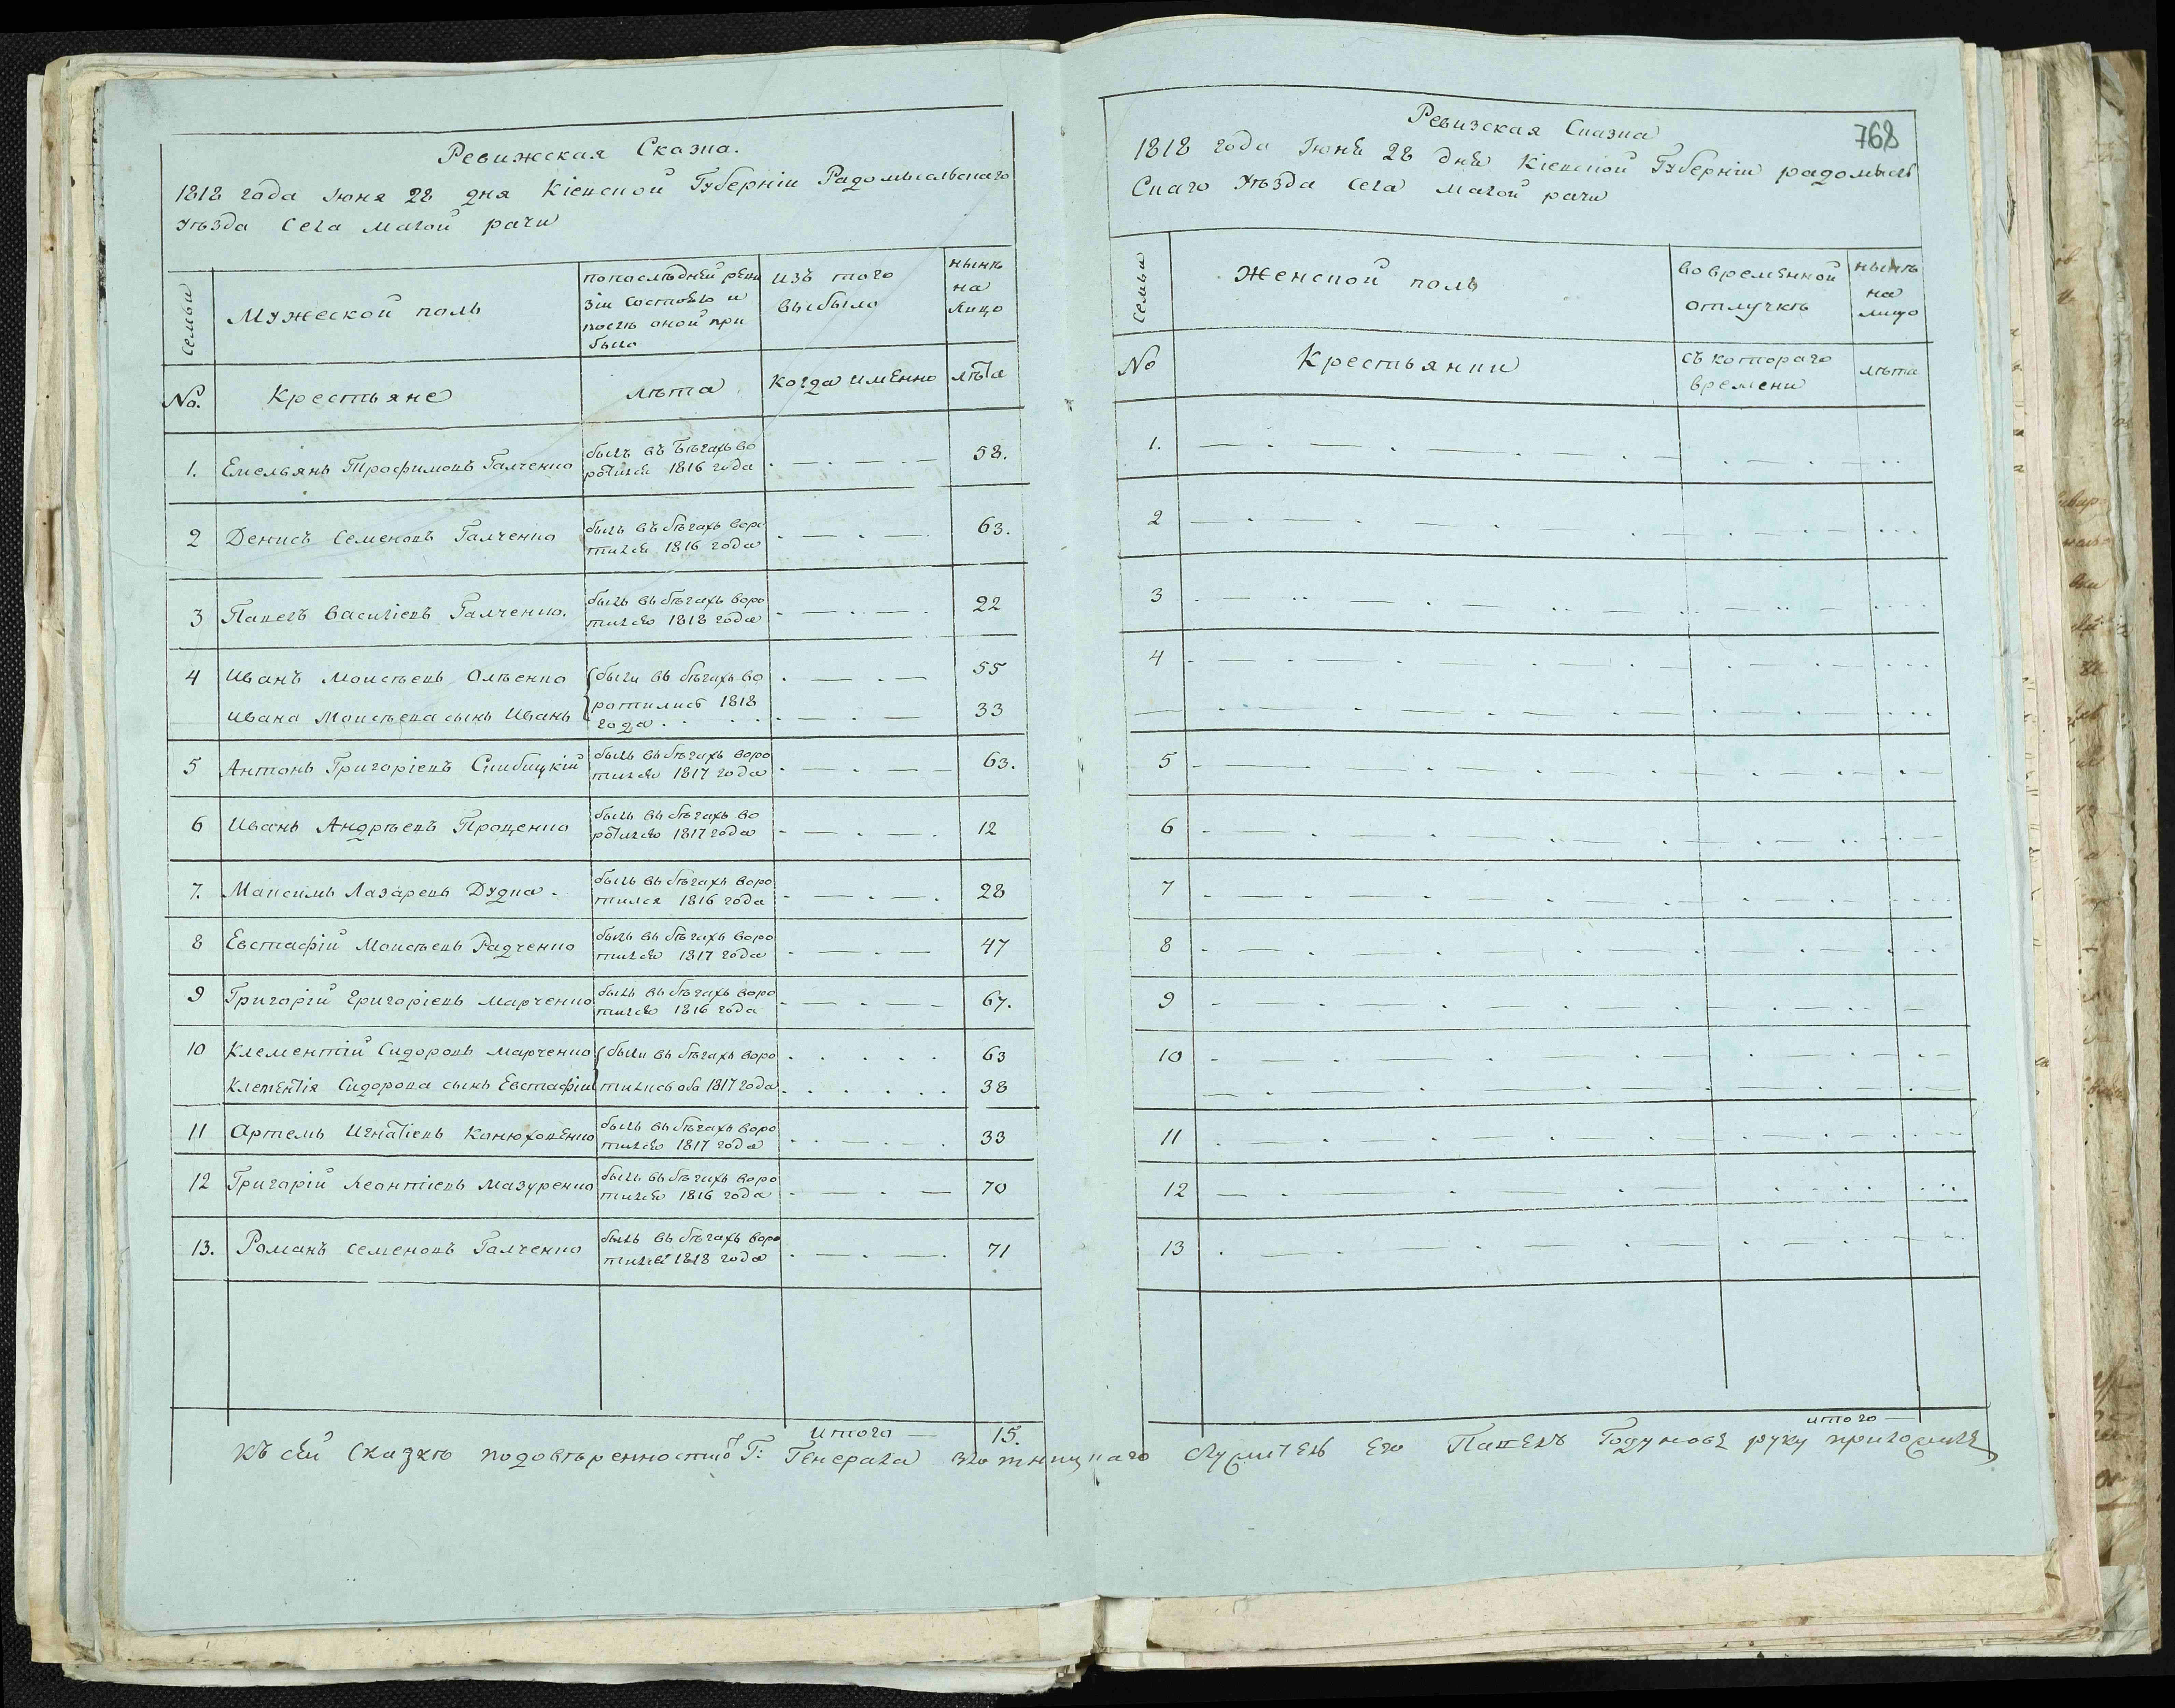 Ревижская Сказка.
1818 года Июня 28 дня Кіевской Губерніи Радомысльскаго
Уѣзда Села малой рачи
Семьи
Мужеской полъ
попослѣдней реви
зіи состояло и
послѣ оной при
было
изъ того
выбыло
нынѣ
на
лицо
№.
Крестьяне
лѣта
когда именно
лѣта
1.
Емельянъ Трофимовъ Галченко
былъ въ бѣгахъ во
ротился 1816 года
58.
2
Денисъ Семеновъ Галченко
былъ въ бѣгахъ воро
тился 1816 года
63.
3
Павелъ Василіевъ Галченко.
былъ въ бѣгахъ воро
тился 1818 года
22
4
Иванъ Моисѣевъ Олѣенко
были въ бѣгахъ во
55
Ивана Моисѣева сынъ Иванъ
ротились 1818
года
33
5
Антонъ Григоріевъ Скибицкій
былъ въ бѣгахъ воро
тился 1817 года
63.
6
Иванъ Андрѣевъ Прощенко
былъ въ бѣгахъ во
ротился 1817 года
12
7.
Максимъ Лазаревъ Дудка.
былъ въ бѣгахъ воро
тился 1816 года
28
8
Евстафій Моисѣевъ Радченко
былъ въ бѣгахъ воро
тился 1817 года
47
9
Григорій Григоріевъ Марченко
былъ въ бѣгахъ воро
тился 1816 года
67.
10
Клементій Сидоровъ Марченко
были въ бѣгахъ воро
63
Клементія Сидорова сынъ Евстафій
тились оба 1817 года
38
11
Артемъ Игнатіевъ Конюховенко
былъ въ бѣгахъ воро
тился 1817 года
33
12
Григорій Леонтіевъ Мазуренко
былъ въ бѣгахъ воро
тился 1816 года
70
13.
Романъ Семеновъ Галченко
былъ въ бѣгахъ воро
тился 1818 года
71
Итого
15.
768
Ревизская Сказка
1818 года Июня 28 дня Кіевской Губерніи радомысль
Скаго Уѣзда села малой рачи
Семьи
Женской полъ
во временной
отлучкѣ
нынѣ
на
лицо
№
Крестьянки
съ котораго
времени
лѣта
1.
2
3
4
5
6
7
8
9
10
11
12
13
итого
Къ сей Сказкѣ подовѣренности Г: Генерала служитель Его Павелъ Годуновъ руку приложилъ